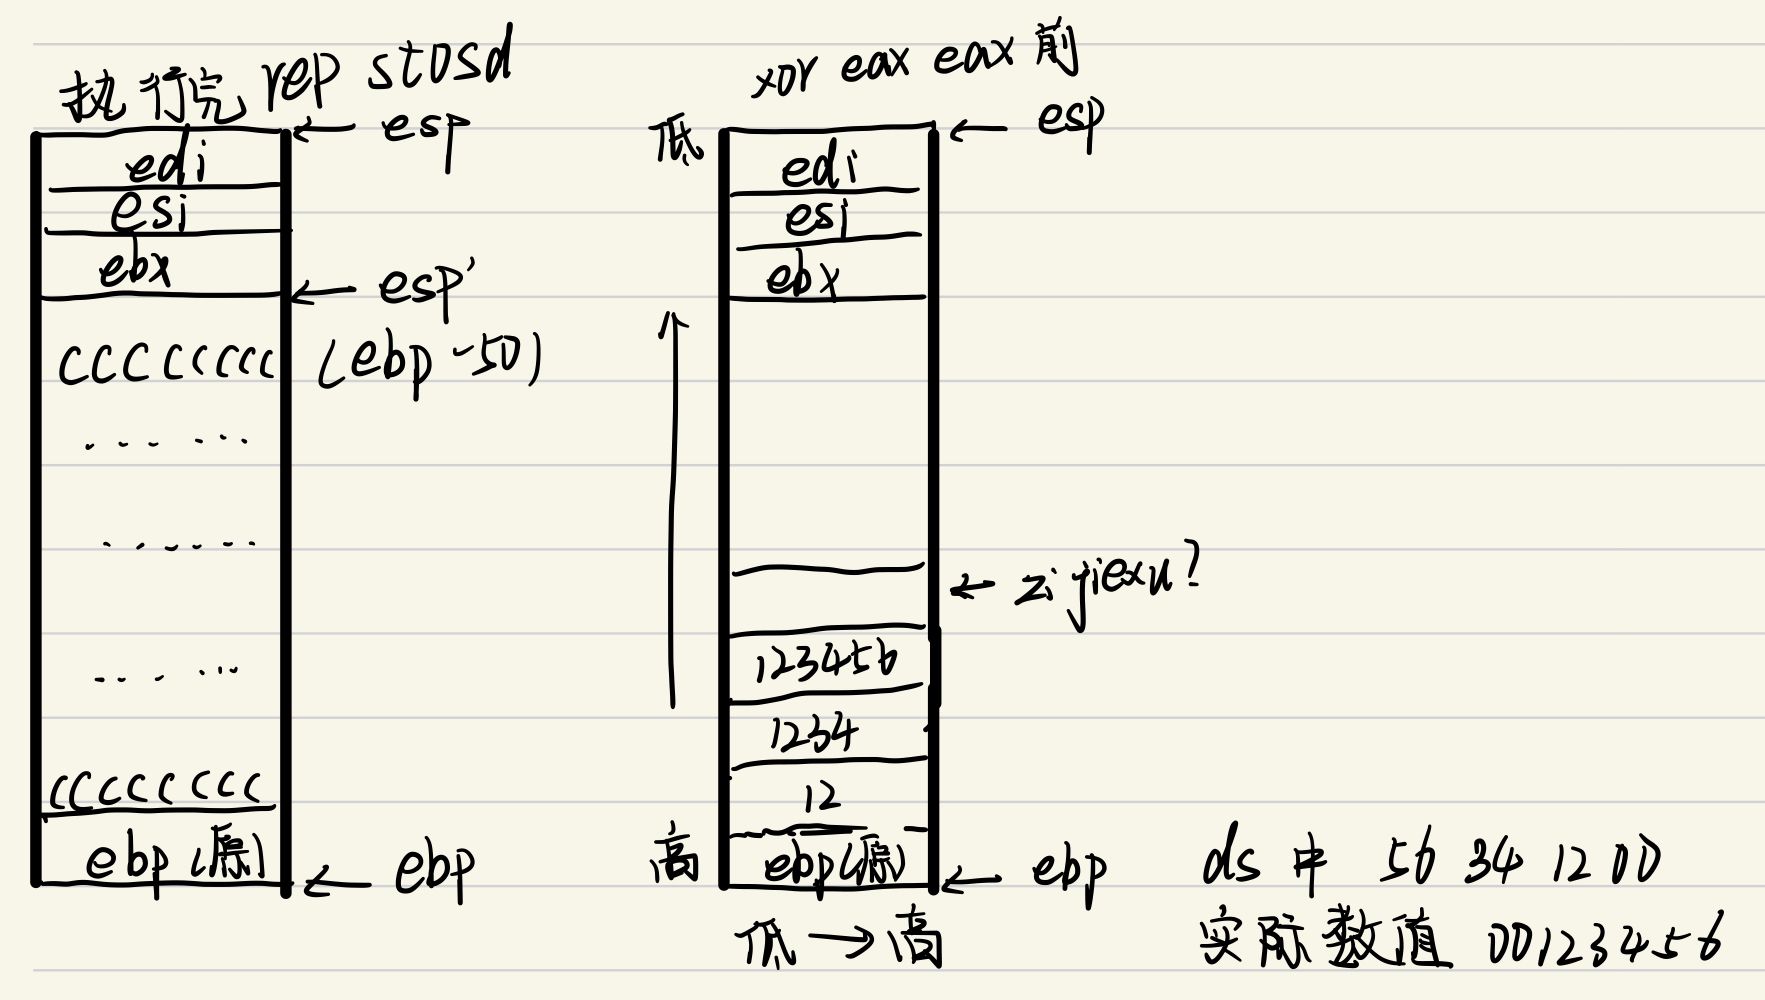 执行完 rep stosd
← esp
edi
esi
ebx
← esp'
CCCCCCCC (ebp -50)
...... 
......
......
CCCCCCCC
ebp (原) ← ebp
xor eax eax 前
低 ← esp
edi
esi
ebx
← zijiexu?
123456
1234
12
高 ebp(原) ← ebp
低 → 高
ds 中 56 34 12 00
实际数值 00123456